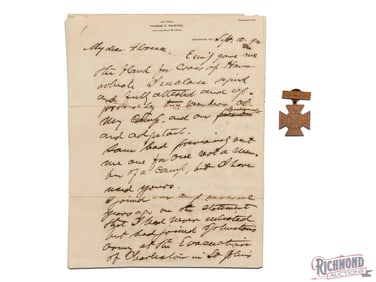 THOMAS P. BARNWELL
Sept. 10 - 
My dear Florence. Emily gave me
the blank for Cross of Honor
which I enclose signed
and full attested and ap-
proved by two members of
My Camp, and our
and adjutant.
Sam had previously sent
me one for one not a mem-
ber of a Camp, but I have
used yours.
I joined our camp several
years ago on the statement
that I had never enlisted
but had joined Johnston's
army at the Evacuation
of Charleston in
RICHMOND
AUCTIONS